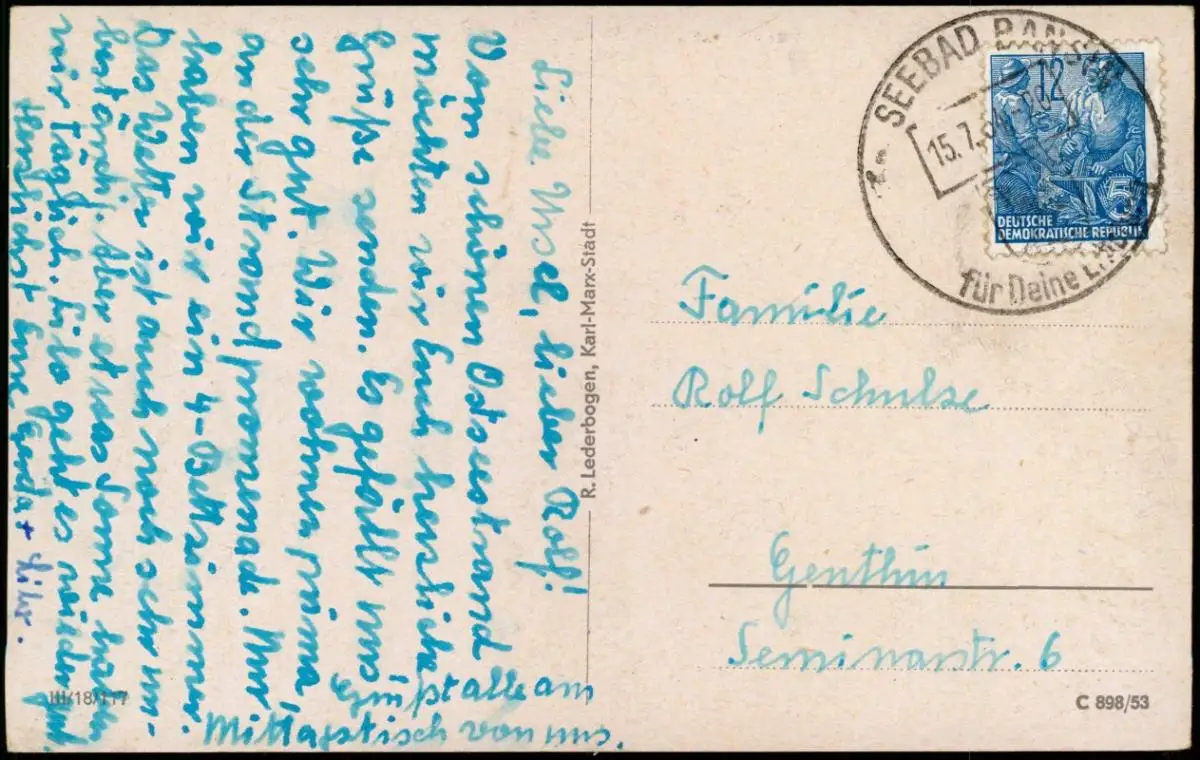 Liebe Ursel, lieber Rolf!
Vom schönen Ostseestrand
möchten wir Euch herzliche
Grüße senden. Es gefällt uns
sehr gut. Wir wohnen prima,
an der Strandpromenade. Nur
haben wir ein 4-Bettzimmer.
Das Wetter ist auch noch sehr un-
beständ. Aber etwas Sonne haben
wir täglich. geht es wieder gut.
Herzlichst Eure Gerda +
Grüßt alle am
Mittagstisch von uns.
III/18/117
R. Lederbogen, Karl-Marx-Stadt
SEEBAD BANSIN
15.7.
für Deine
12
5
DEUTSCHE
DEMOKRATISCHE REPUBLIK
Familie
Rolf Schulze
Genthin
Seminarstr. 6
C 898/53